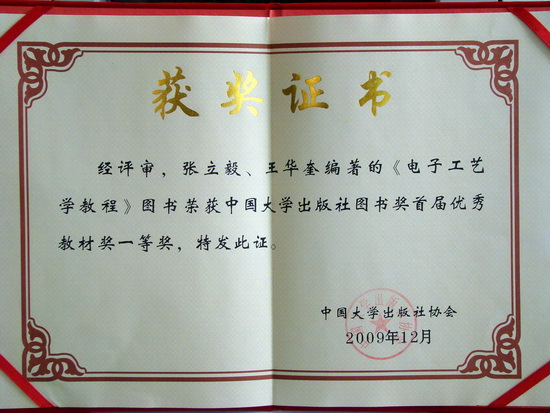 获奖证书
经评审，张立毅、王华奎编著的《电子工艺
学教程》图书荣获中国大学出版社图书奖首届优秀
教材奖一等奖，特发此证。
中国大学出版社协会
2009年12月